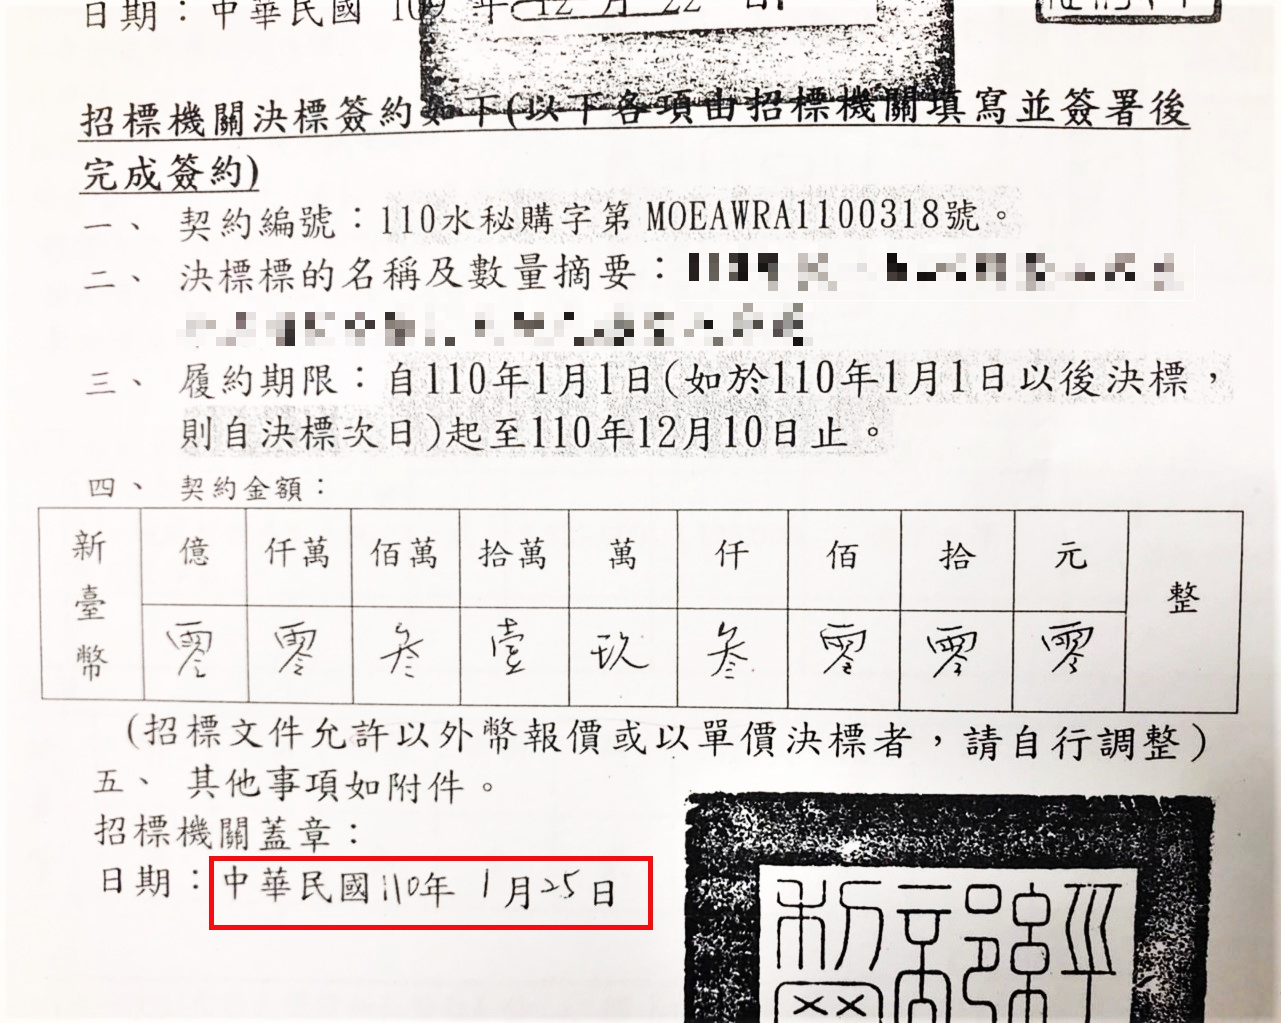 日期：中華民國 109 年 12 月 22 日
招標機關決標簽約如下(以下各項由招標機關填寫並簽署後
完成簽約)
一、 契約編號：110水秘購字第 MOEAWRA1100318號。
二、 決標標的名稱及數量摘要：
三、 履約期限：自110年1月1日(如於110年1月1日以後決標，
則自決標次日)起至110年12月10日止。
四、 契約金額：
新臺幣 億 仟萬 佰萬 拾萬 萬 仟 佰 拾 元 整
零 零 叁 壹 玖 叁 零 零 零
(招標文件允許以外幣報價或以單價決標者，請自行調整)
五、 其他事項如附件。
招標機關蓋章：
日期：中華民國110年 1月25日